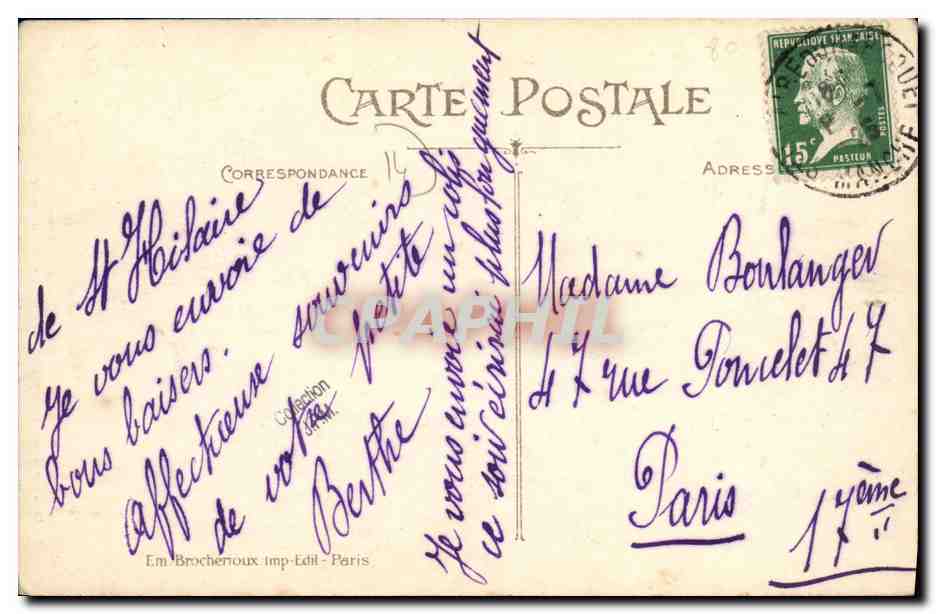 CARTE POSTALE
CORRESPONDANCE
ADRESSE
14
80
REPVBLIQVE FRANÇAISE
15c
POSTES
PASTEUR
MANCHE
de St Hilaire
Je vous envoie de
bons baisers.
Affectueuse souvenirs
de votre petite
Berthe
Je vous envoie un colis
ce soir écrirai plus longuement
Madame Boulanger
47 rue Poncelet 47
Paris
17ème
Em. Brocherioux Imp-Edit - Paris
Collection
CPAPHIL